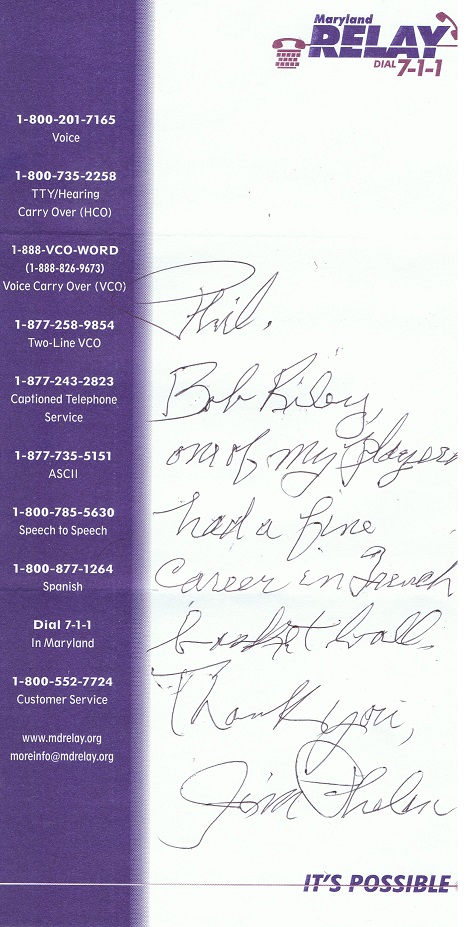 Maryland
RELAY
DIAL 7-1-1
1-800-201-7165
Voice
1-800-735-2258
TTY/Hearing
Carry Over (HCO)
1-888-VCO-WORD
(1-888-826-9673)
Voice Carry Over (VCO)
1-877-258-9854
Two-Line VCO
1-877-243-2823
Captioned Telephone
Service
1-877-735-5151
ASCII
1-800-785-5630
Speech to Speech
1-800-877-1264
Spanish
Dial 7-1-1
In Maryland
1-800-552-7724
Customer Service
www.mdrelay.org
moreinfo@mdrelay.org
Phil,
Bob Riley,
one of my players
had a fine
career in French
basketball.
Thank you,
Jim Phelan
IT'S POSSIBLE